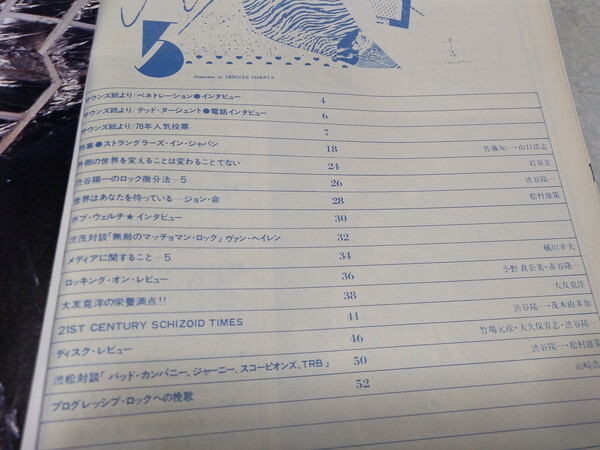 5
Illustration by HIROICHI HARATA
サウンズ紙より/ペネトレーション●インタビュー 4
サウンズ紙より/テッド・ヌージェント●電話インタビュー 6
サウンズ紙より/78年人気投票 7
特集●ストラングラーズ・イン・ジャパン 18 佐藤知一・山口浩志
外側の世界を変えることは変わることでない 24 岩谷宏
渋谷陽一のロック微分法—5 26 渋谷陽一
世界はあなたを待っている—ジョン・命 28 松村雄策
ボブ・ウェルチ★インタビュー 30
渋茂対談「無敵のマッチョマン・ロック」ヴァン・ヘイレン 32
メディアに関すること—5 34 橘川幸夫
ロッキング・オン・レビュー 36 小野真奈美・赤谷隆一
大友克洋の栄養満点!! 38 大友克洋
21ST CENTURY SCHIZOID TIMES 41 渋谷陽一・茂木由多加
ディスク・レビュー 46 竹場元彦・大久保青志・渋谷陽一
渋松対談「バッド・カンパニー、ジャーニー、スコーピオンズ、TRB」 50 渋谷陽一・松村雄策
プログレッシブ・ロックへの挽歌 52 山崎浩